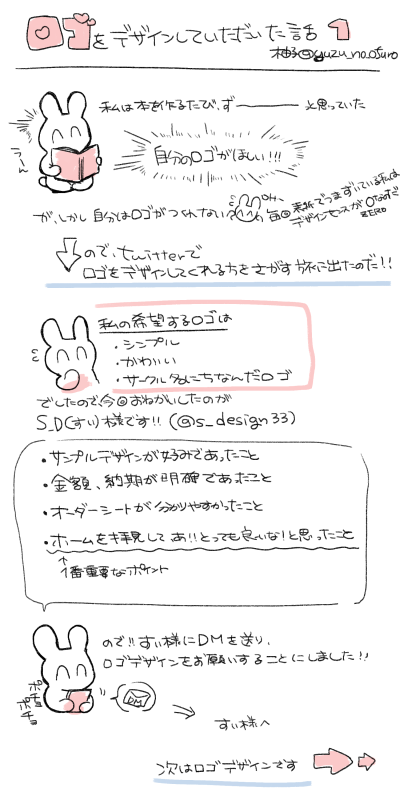 ロゴをデザインしていただいた話 1
柚子@yuzu_no_osuro
私は本を作るたび、ず――――っと思っていた
じーん
自分のロゴがほしい!!!
が、しかし自分はロゴがつくれない
OH…
毎回表紙でつまずいている私は
デザインセンスが0なのだ
ZERO
ので、twitterで
ロゴをデザインしてくれる方をさがす旅に出たのだ!!
私の希望するロゴは
・シンプル
・かわいい
・サークル名にちなんだロゴ
でしたので、今回おねがいしたのが
S_D(すい)様です!! (@s_design33)
・サンプルデザインが好みであったこと
・金額、納期が明確であったこと
・オーダーシートが分かりやすかったこと
・ホームを拝見して あ!!とっても良いな!と思ったこと
↑1番重要なポイント
ので!!すい様にDMを送り、
ロゴデザインをお願いすることにしました!!
ポチョ
ポチョ
DM
すい様へ
次はロゴデザインです